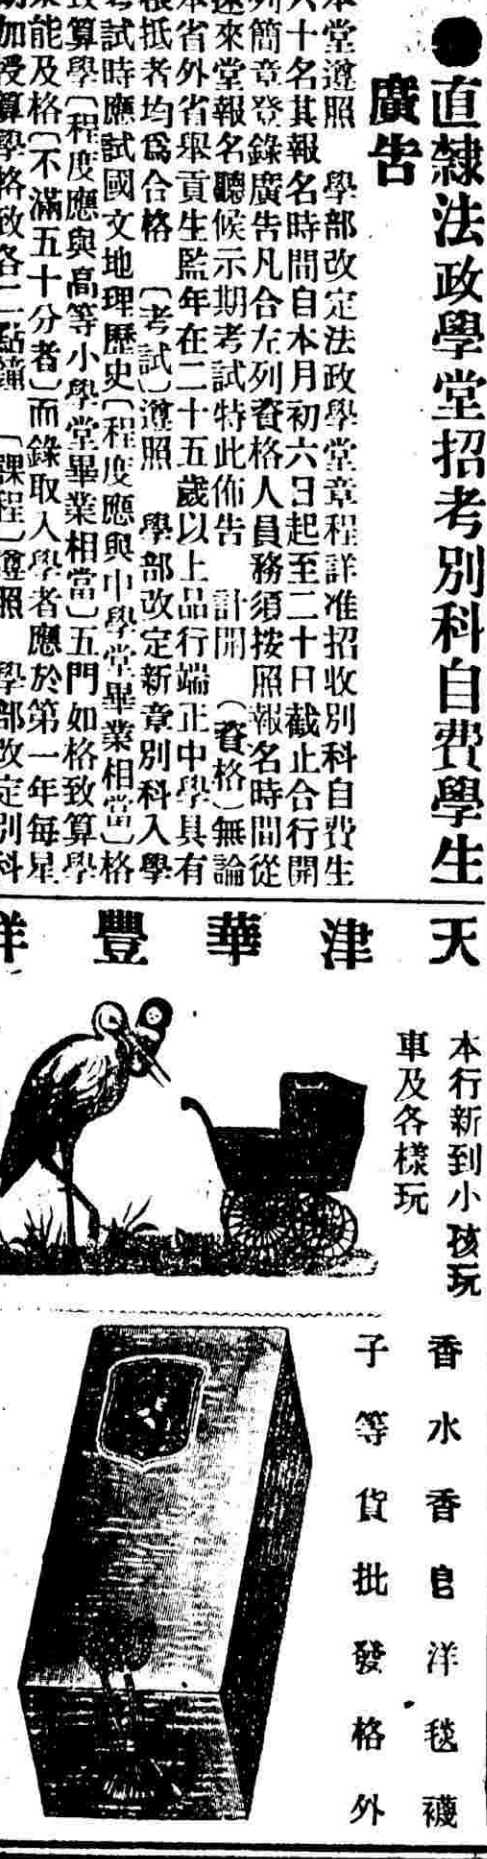 直隸法政學堂招考別科自費學生
廣告
本堂遵照　學部改定法政學堂章程詳准招收別科自費生
六十名其報名時間自本月初六日起至二十日截止合行開
列簡章登錄廣告凡合左列資格人員務須按照報名時間從
速來堂報名聽候示期考試特此佈告　計開　（資格）無論
本省外省舉貢生監年在二十五歲以上品行端正中學具有
根抵者均爲合格　〔考試〕遵照　學部改定新章別科入學
考試時應試國文地理歷史〔程度應與中學堂畢業相當〕格
致算學〔程度應與高等小學堂畢業相當〕五門如格致算學
未能及格〔不滿五十分者〕而錄取入學者應於第一年每星
期加授算學格致各二點鐘　〔課程〕遵照　學部改定別科
天津華豐祥
本行新到小孩玩
車及各樣玩
香水香皂洋毯襪
子等貨批發格外